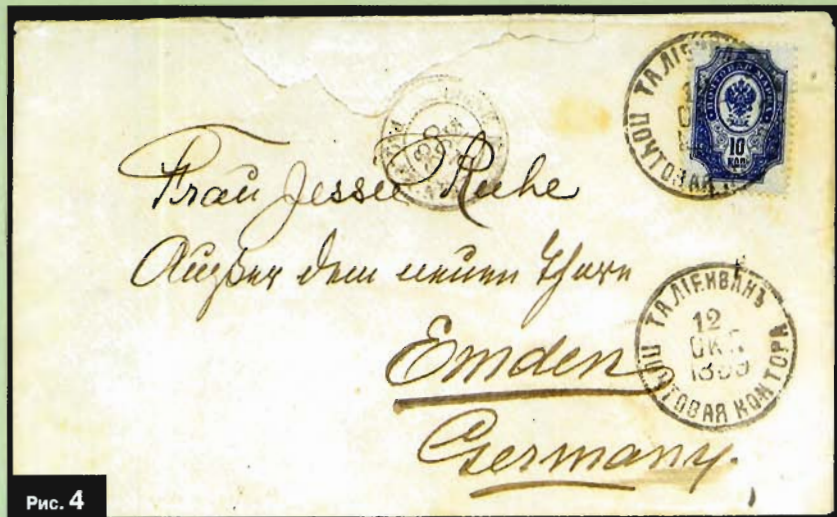 ТАЛІЕНВАН
ПОЧТОВАЯ
ПОЧТОВАЯ МАРКА
10
КОП.
Frau Jessie Ruhe
Außer dem neuen Thore
Emden
Germany.
ТАЛІЕНВАНЪ
12
ОКТ
1899
ПОЧТОВАЯ КОНТОРА
Рис. 4